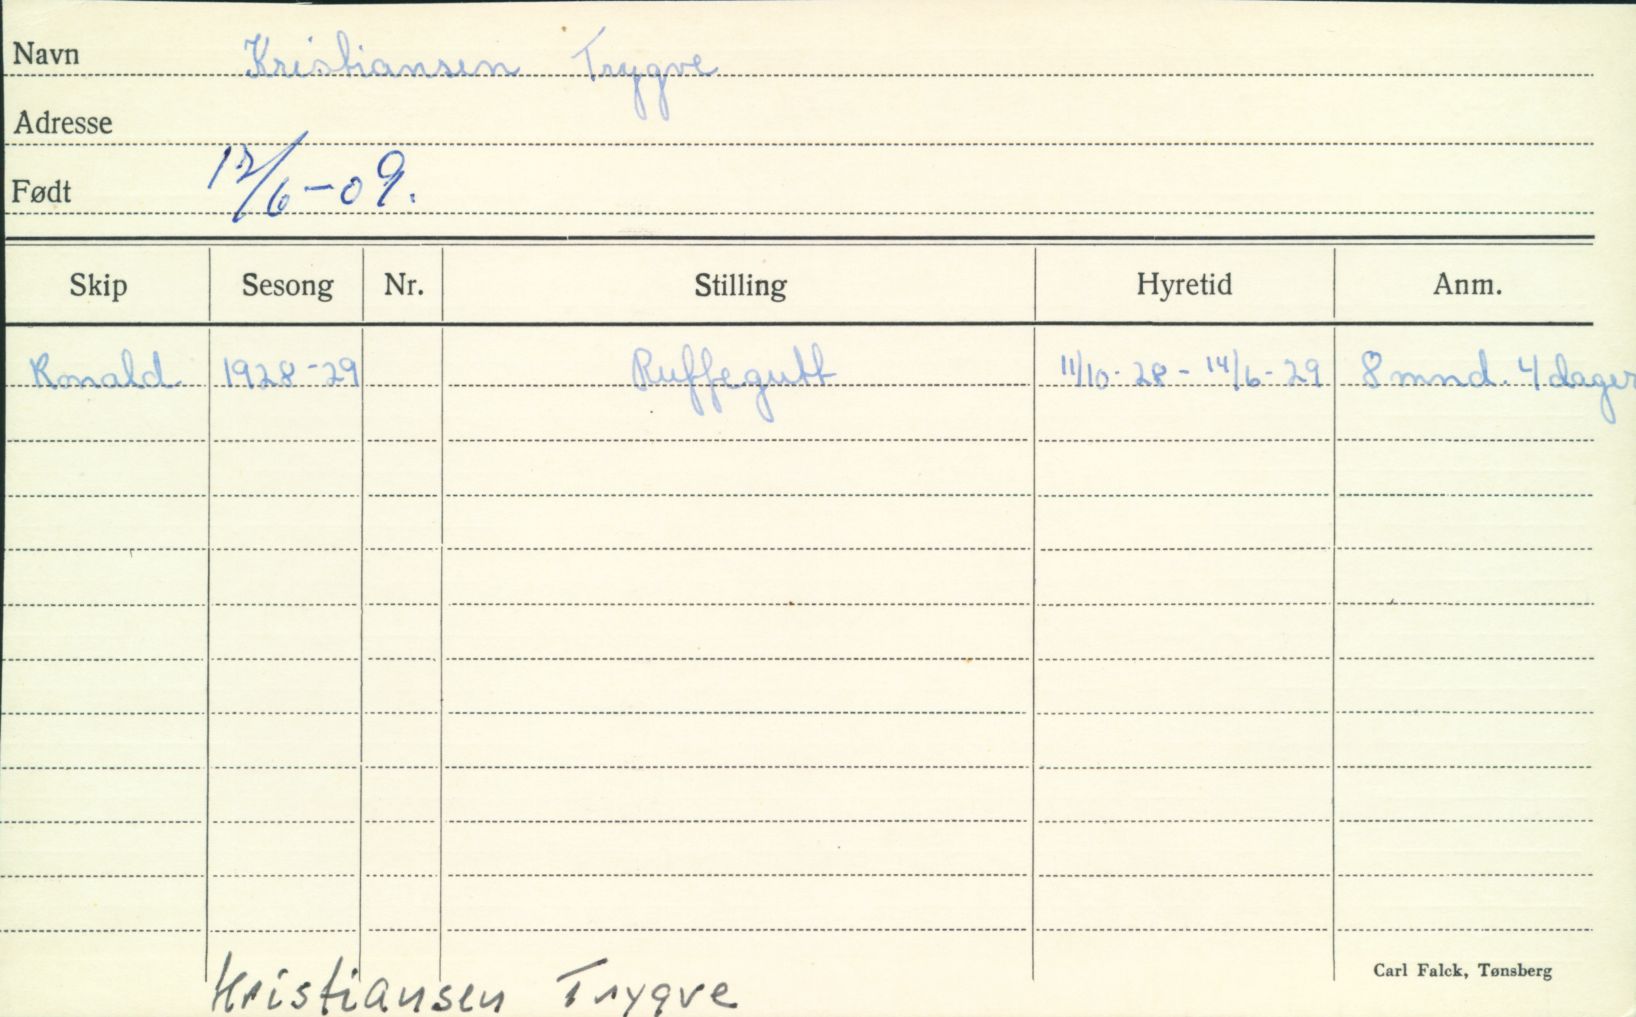 Navn Kristiansen Trygve
Adresse
Født 12/6-09.
Skip Sesong Nr. Stilling Hyretid Anm.
Ronald 1928-29 Ruffegutt 11/10-28 - 14/6-29 8 mnd. 4 dager
Carl Falck, Tønsberg
Kristiansen Trygve